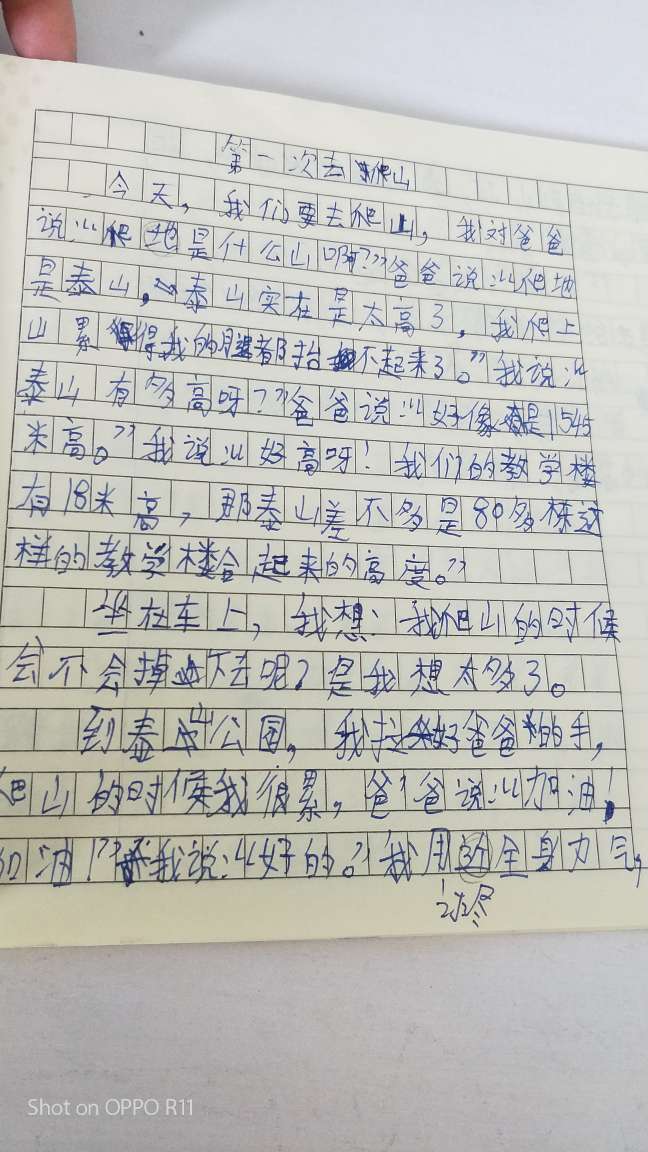 第一次去爬山
今天，我们要去爬山，我对爸爸
说：“爬地是什么山啊？”爸爸说：“爬地
是泰山，泰山实在是太高了，我爬上
山累得我的腿都抬不起来了。”我说：“
泰山有多高呀？”爸爸说：“好像是1545
米高。”我说：“好高呀！我们的教学楼
有18米高，那泰山差不多是80多栋这
样的教学楼合起来的高度。”
坐在车上，我想：我爬山的时候
会不会掉下去呢？是我想太多了。
到泰山公园，我拉好爸爸的手，
爬山的时候我很累，爸爸说：“加油！
加油！”我说：“好的。”我用全身力气，
Shot on OPPO R11